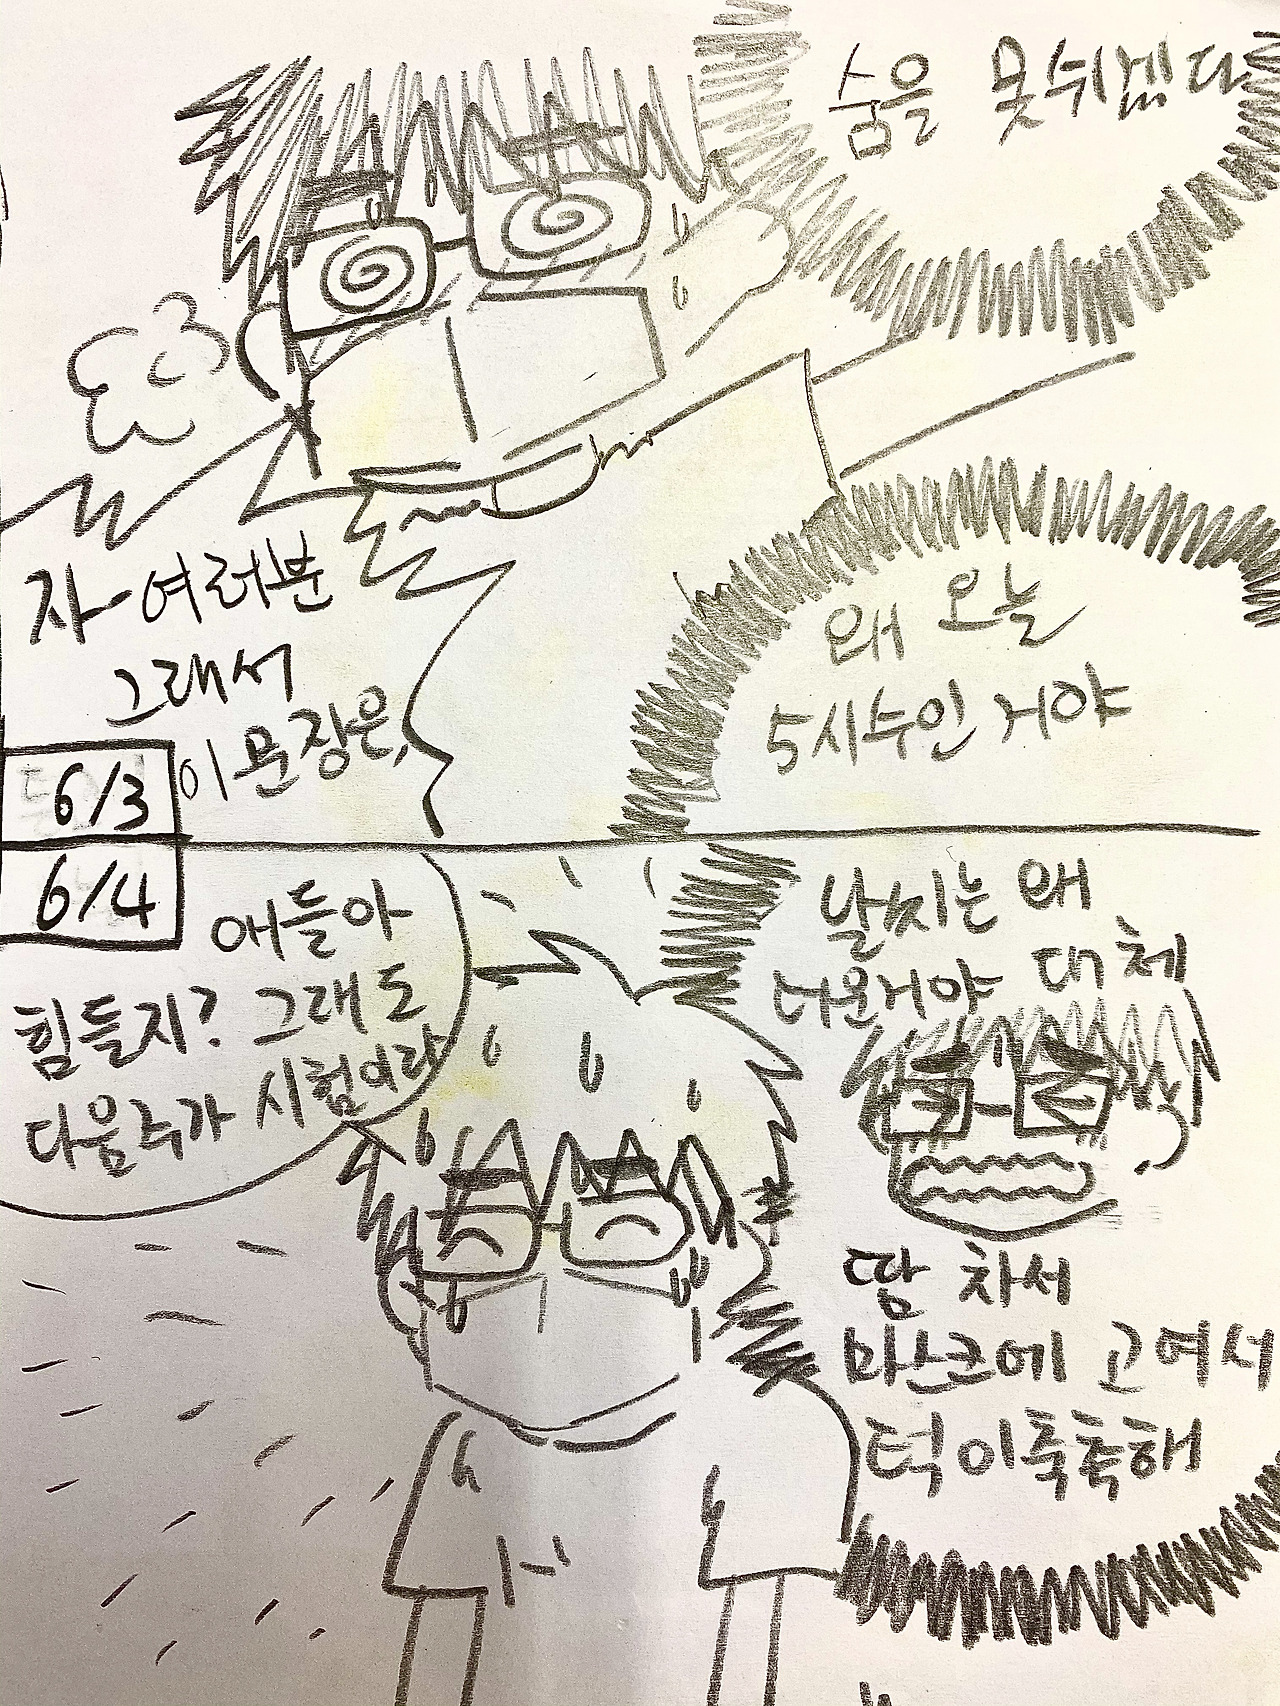 숨을 못쉬겠다
자 여러분
그래서
이 문장은,
왜 오늘
5시수인 거야
6/3
6/4
애들아
힘들지? 그래도
다음주가 시험이라
날씨는 왜
더운거야 대체
땀 차서
마스크에 고여서
턱이축축해